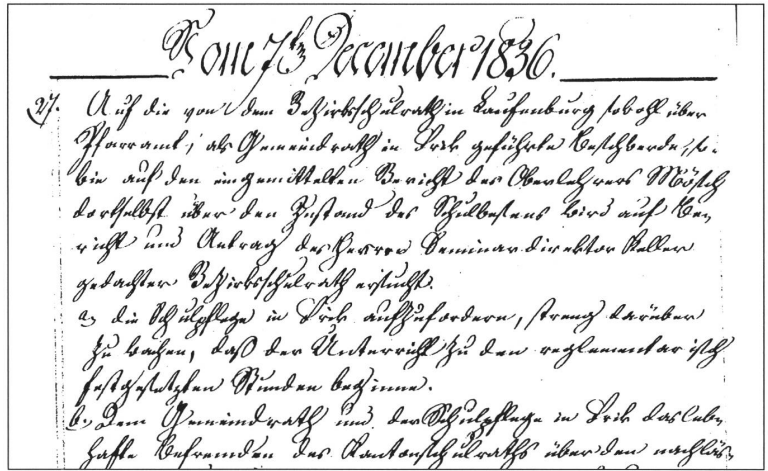 Vom 7ten December 1836.
27. Auf die von dem Bezirksschulrath in Laufenburg sowohl über
Pfarramt, als Gemeindrath in Frik geführte Beschwerde, so-
wie auf den eingemittelten Bericht des Oberlehrers Mösch
dortselbst über den Zustand des Schulwesens wird auf Be-
richt und Antrag des Herrn Seminardirektor Keller
gedachter Bezirksschulrath ersucht.
a. die Schulpflege in Frik aufzufordern, streng darüber
zu wachen, daß der Unterricht zu den reglementarisch
festgesetzten Stunden beginne.
b. Dem Gemeindrath und der Schulpflege in Frik das leb-
hafte Befremden des Kantonsschulraths über den nachläs-